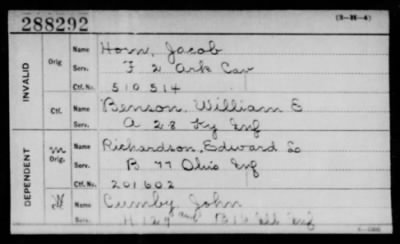 288292
(3-36-4)
INVALID
Orig
Name Horn, Jacob
Serv. F 2 Ark Cav
Ctf. No. 510514
Ctf.
Name Benson William E
Serv. A 28 Ky Inf
DEPENDENT
m Orig.
Name Richardson, Edward
Serv. B 77 Ohio Inf
Ctf. No. 201602
Name Cumby, John
Serv. H 124 Ill Inf